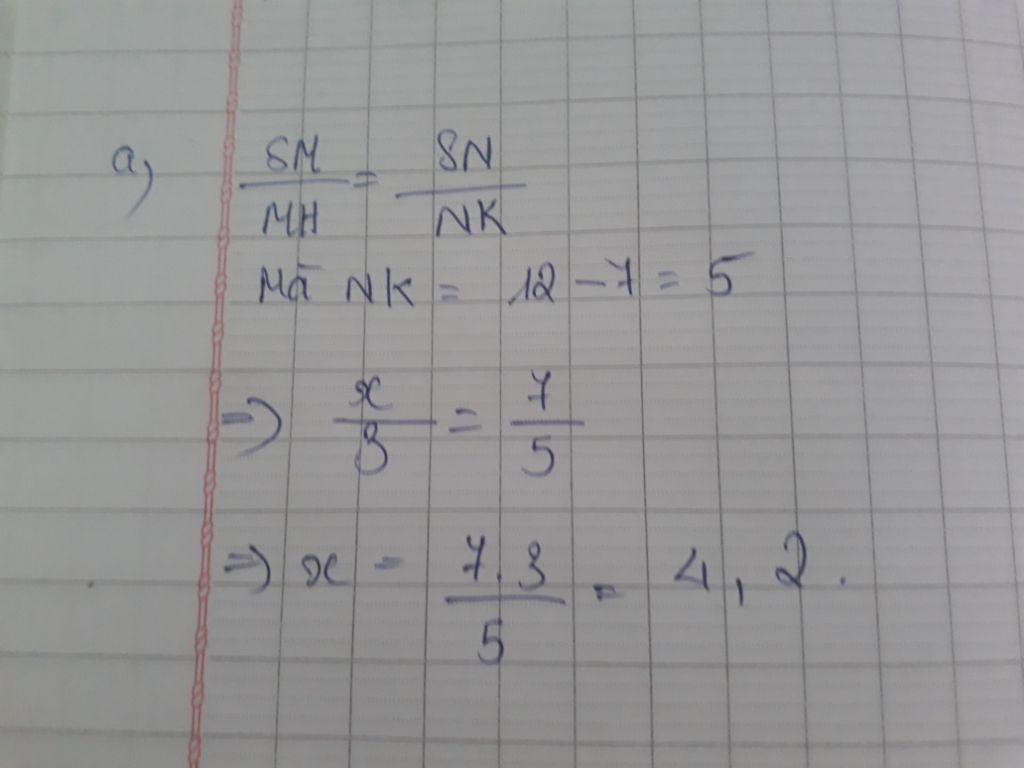 a) SM/MH = SN/NK
Mà NK = 12 - 7 = 5
=> x/3 = 7/5
=> x = 7.3/5 = 4,2.